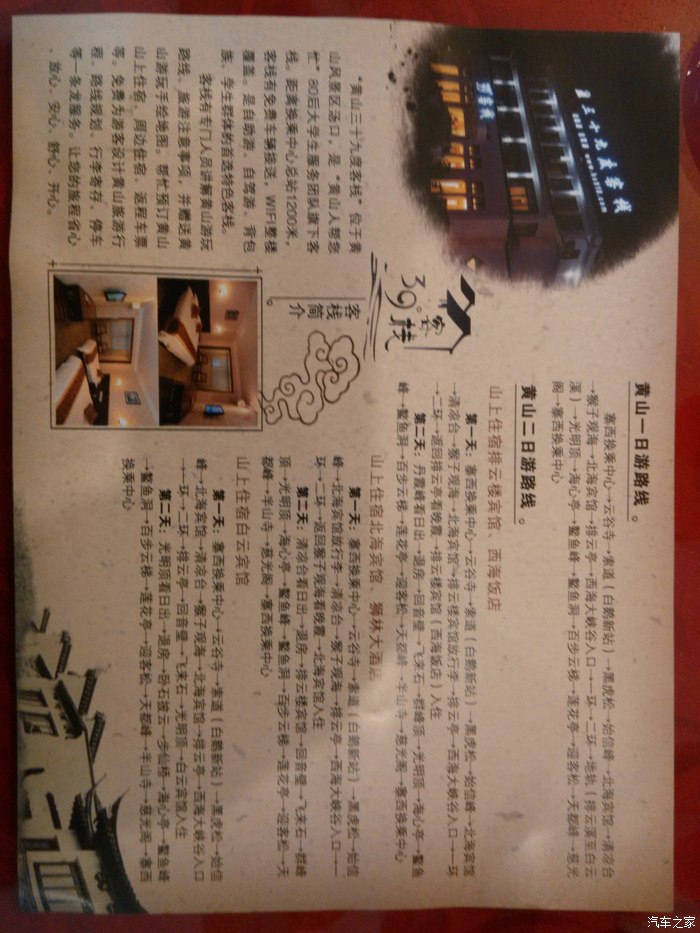 三十九度客栈
客栈
39°客栈
客栈简介
“黄山三十九度客栈”位于黄
山风景区汤口，是“黄山人帮您
忙”80后大学生服务团队旗下客
栈。距离换乘中心总站1200米，
客栈有免费车辆接送，WIFI整楼
覆盖。是自助游、自驾游、背包
族、学生群体的首选特色客栈。
客栈有专门人员讲解黄山游玩
路线、旅游注意事项，并赠送黄
山游玩手绘地图。帮忙预订黄山
山上住宿、周边住宿、返程车票
等。免费为游客设计黄山旅游行
程、路线规划、行李寄存、停车
等一条龙服务，让您的旅程省心
、放心、安心、舒心、开心。
黄山一日游路线。
寨西换乘中心→云谷寺→索道（白鹅新站）→黑虎松→始信峰→北海宾馆→清凉台
→猴子观海→北海宾馆→排云亭→西海大峡谷入口→一环→二环→地轨（排云溪至白云
溪）→光明顶→海心亭→鳌鱼峰→鳌鱼洞→百步云梯→莲花亭→迎客松→天都峰→慈光
阁→寨西换乘中心
黄山二日游路线。
山上住宿排云楼宾馆、西海饭店
第一天：寨西换乘中心→云谷寺→索道（白鹅新站）→黑虎松→始信峰→北海宾馆
→清凉台→猴子观海→北海宾馆→排云楼宾馆放行李→排云亭→西海大峡谷入口→一环
→二环→返回排云亭看晚霞→排云楼宾馆（西海饭店）入住
第二天：丹霞峰看日出→退房→回音壁→飞来石→群峰顶→光明顶→海心亭→鳌鱼
峰→鳌鱼洞→百步云梯→莲花亭→迎客松→天都峰→半山寺→慈光阁→寨西换乘中心
山上住宿北海宾馆、狮林大酒店
第一天：寨西换乘中心→云谷寺→索道（白鹅新站）→黑虎松→始信
峰→北海宾馆放行李→清凉台→猴子观海→排云亭→西海大峡谷入口→一
环→二环→返回猴子观海看晚霞→北海宾馆入住
第二天：清凉台看日出→退房→排云楼宾馆→回音壁→飞来石→群峰
顶→光明顶→海心亭→鳌鱼峰→鳌鱼洞→百步云梯→莲花亭→迎客松→天
都峰→半山寺→慈光阁→寨西换乘中心
山上住宿白云宾馆
第一天：寨西换乘中心→云谷寺→索道（白鹅新站）→黑虎松→始信
峰→北海宾馆→清凉台→猴子观海→北海宾馆→排云亭→西海大峡谷入口
→一环→二环→排云亭→回音壁→飞来石→光明顶→白云宾馆入住
第二天：光明顶看日出→退房→卧石披云→步仙桥→海心亭→鳌鱼峰
→鳌鱼洞→百步云梯→莲花亭→迎客松→天都峰→半山寺→慈光阁→寨西
换乘中心
汽车之家